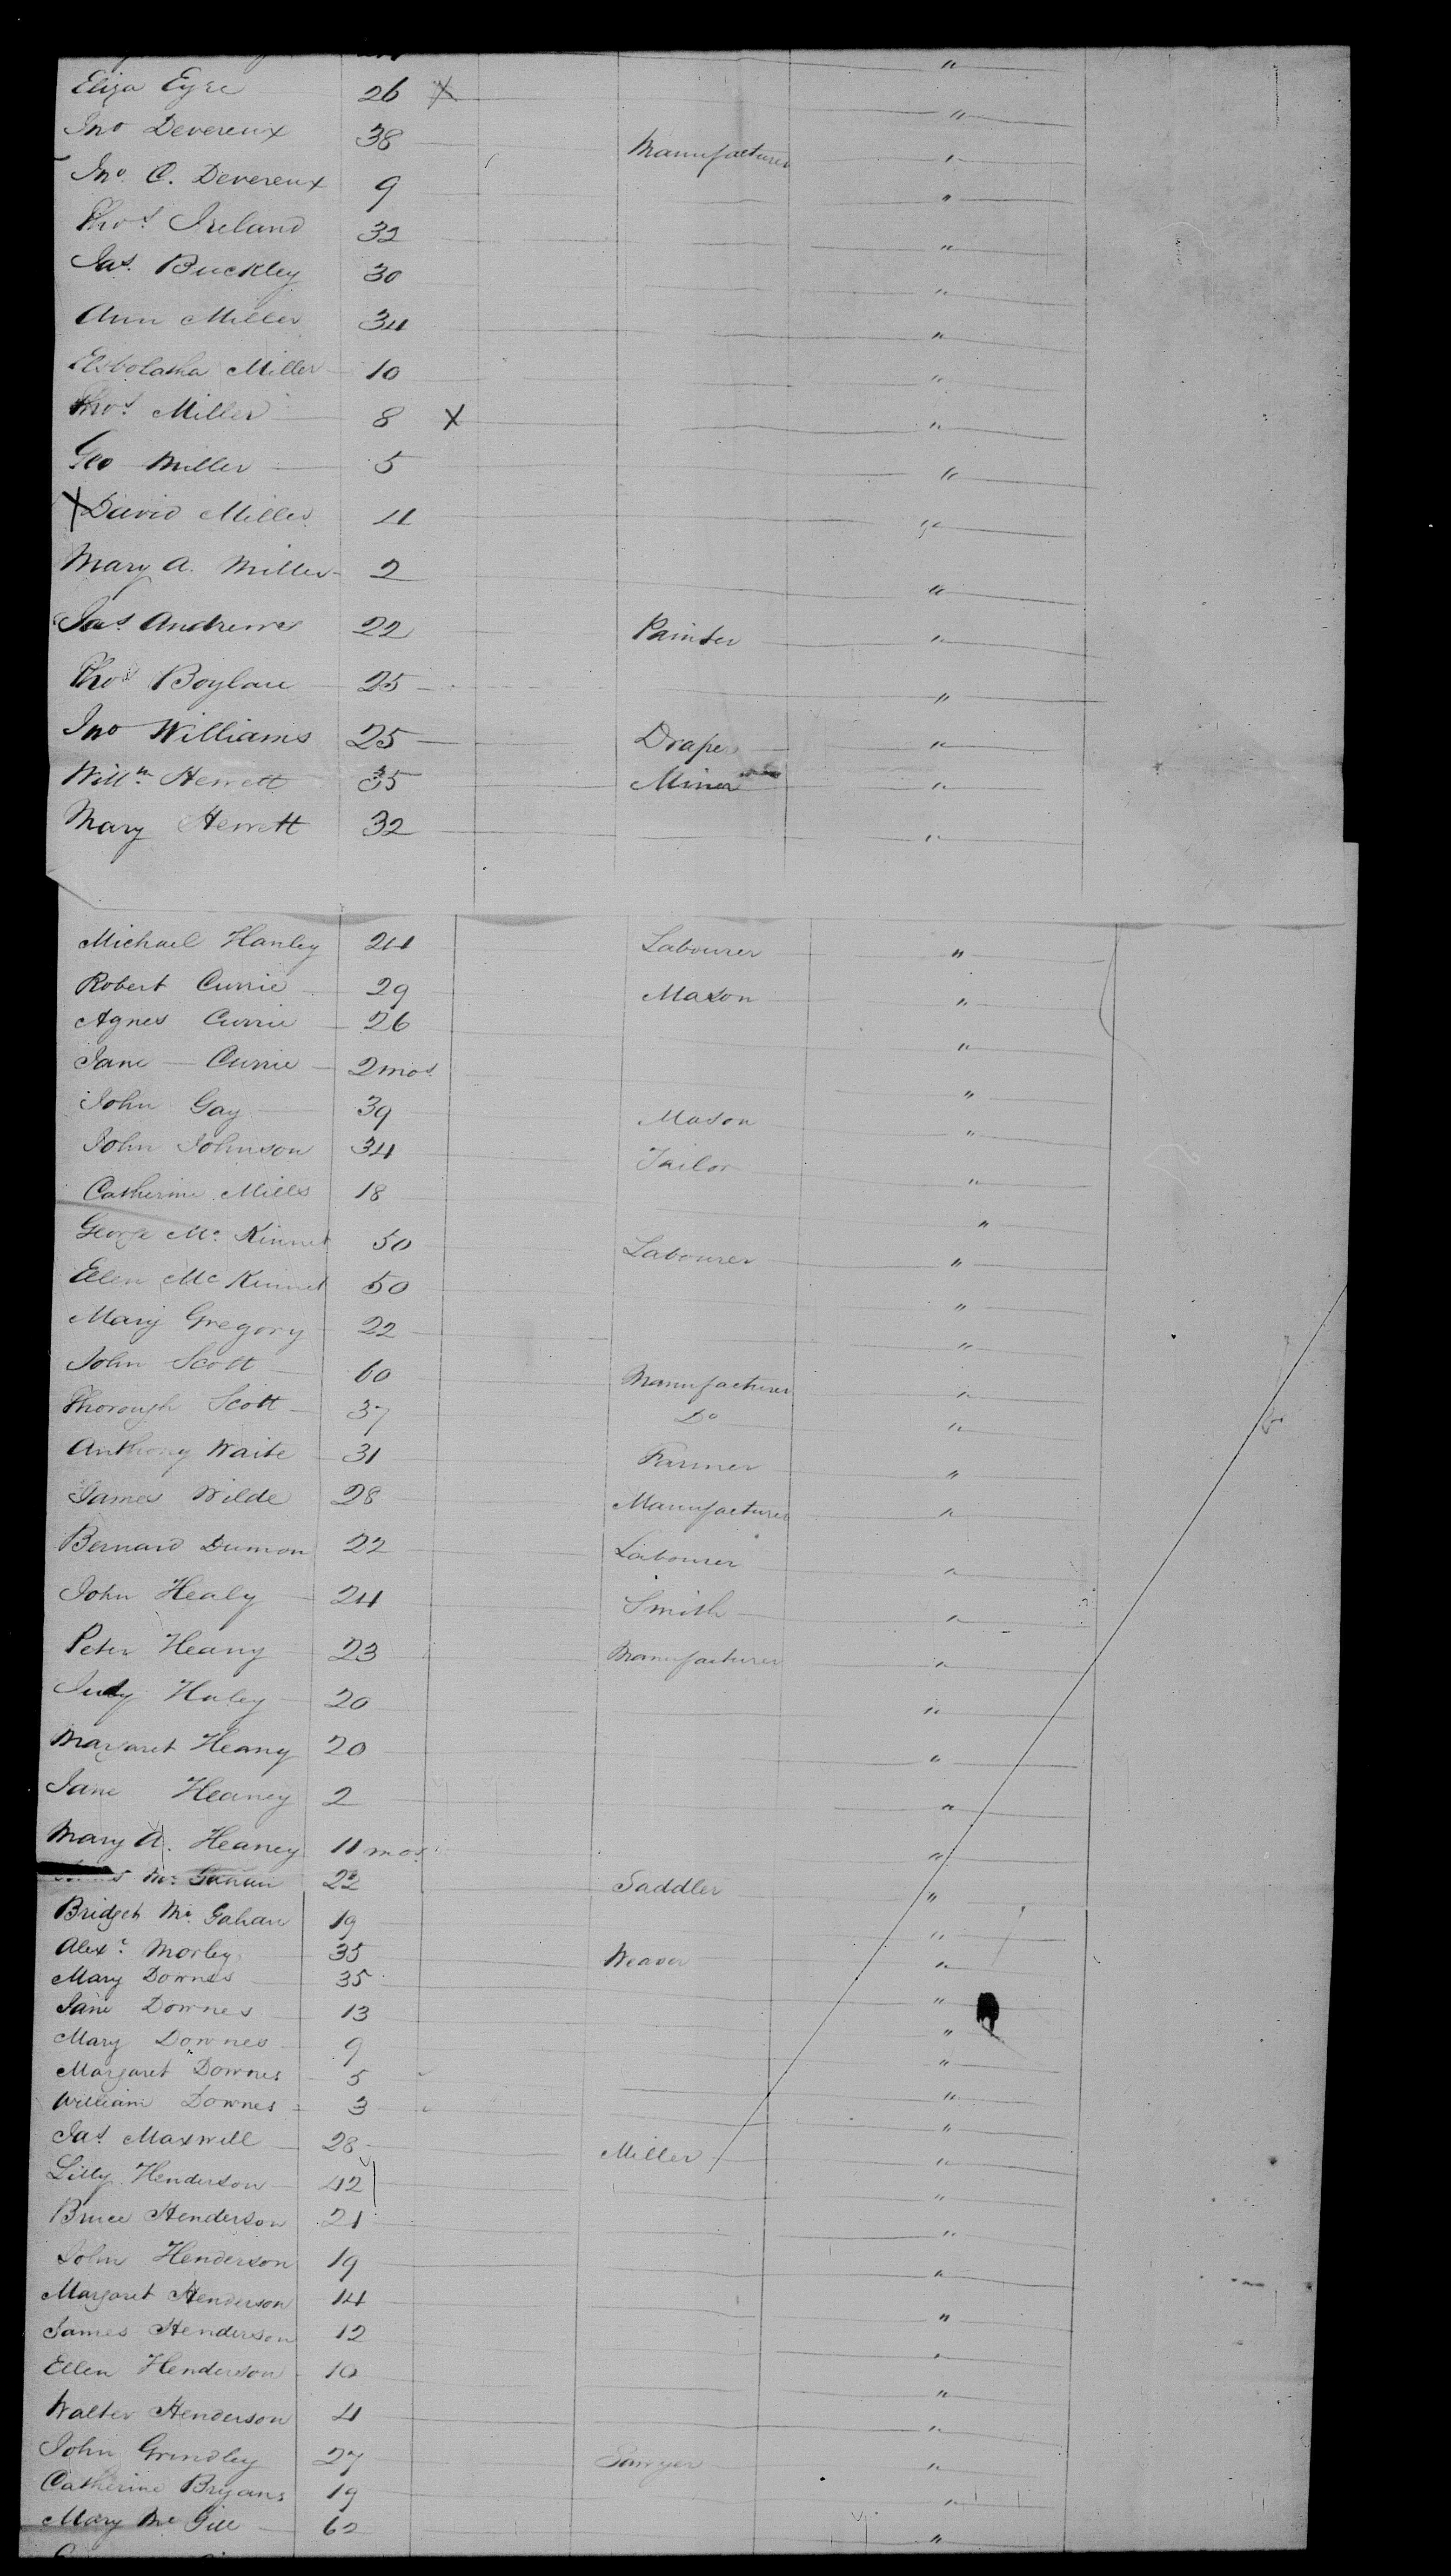 Eliza Eyre 26 X "
Jno Devereux 38 Manufacturer "
Jno. C. Devereux 9 "
Thos. Ireland 32 "
Jas. Buckley 30 "
Ann Miller 34 "
Miller 10 "
Thos. Miller 8 X "
Geo Miller 5 "
X David Miller 4 "
Mary A. Miller 2 "
Jas. Andrews 22 Painter "
Thos Boylan 25 "
Jno Williams 25 Draper "
Willm Hewett 35 Miner "
Mary Hewett 32 "
Michael Hanley 24 Labourer "
Robert Currie 29 Mason "
Agnes Currie 26 "
Jane Currie 2 mos. "
John Gay 39 Mason "
John Johnson 34 Tailor "
Catherine Mills 18 "
George Mc Kinnet 50 Labourer "
Ellen Mc Kinnet 50 "
Mary Gregory 22 "
John Scott 60 Manufacturer "
Thorough Scott 37 Do "
Anthony Waite 31 Farmer "
James Wilde 28 Manufacturer "
Bernard Dumon 22 Labourer "
John Healy 24 Smith "
Peter Heany 23 Manufacturer "
Judy Haley 20 "
Margaret Heany 20 "
Jane Heaney 2 "
Mary A. Heaney 11 mos. "
Mc Gahan 22 Saddler "
Bridget Mc Gahan 19 "
Alexr. Morley 35 Weaver "
Mary Downes 35 "
Jane Downes 13 "
Mary Downes 9 "
Margaret Downes 5 "
William Downes 3 "
Jas. Maxwell 28 Miller "
Lilly Henderson 42 "
Bruce Henderson 21 "
John Henderson 19 "
Margaret Henderson 14 "
James Henderson 12 "
Ellen Henderson 10 "
Walter Henderson 4 "
John Grindley 27 Sawyer "
Catherine Bryans 19 "
Mary Mc Gill 62 "